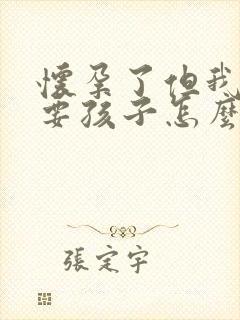 懷孕了但我
要孩子怎麼
張定宇